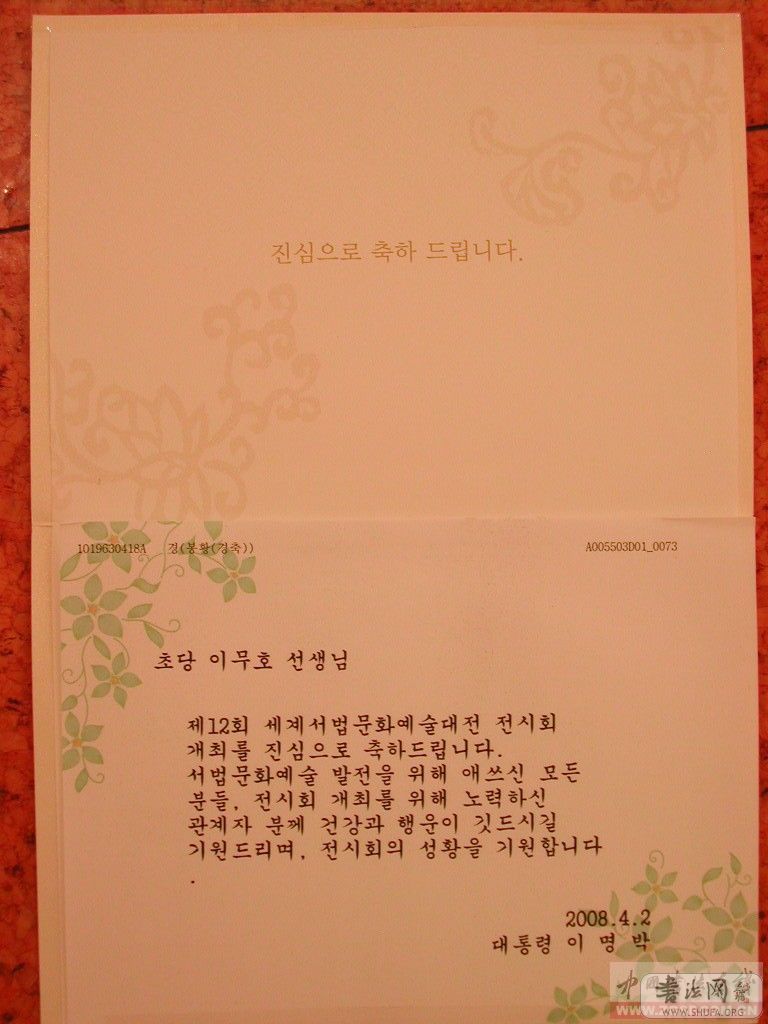 진심으로 축하 드립니다.
1019630418A 경(봉황(경축)) A005503D01_0073
초당 이무호 선생님
제12회 세계서법문화예술대전 전시회
개최를 진심으로 축하드립니다.
서법문화예술 발전을 위해 애쓰신 모든
분들, 전시회 개최를 위해 노력하신
관계자 분께 건강과 행운이 깃드시길
기원드리며, 전시회의 성황을 기원합니다
.
2008.4.2
대통령 이 명 박
书法网
WWW.SHUFA.ORG